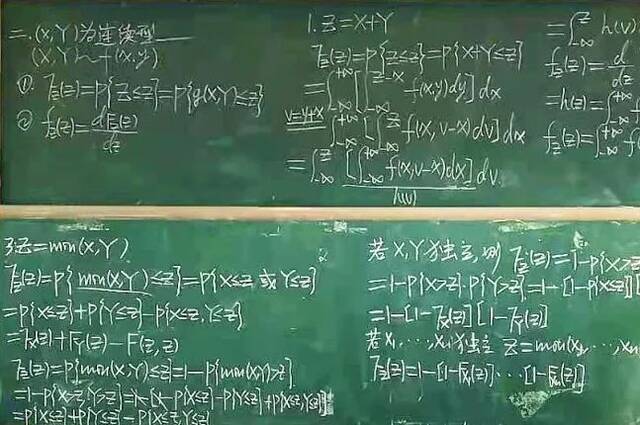 二.(X,Y)为连续型
(X,Y)~f(x,y)
①. F_Z(z)=P{Z≤z}=P{g(X,Y)≤z}
② f_Z(z)=dF_Z(z)/dz
1. Z=X+Y
F_Z(z)=P{Z≤z}=P{X+Y≤z}
=∫_{-∞}^{+∞}[∫_{-∞}^{z-x} f(x,y)dy]dx
v=y+x ∫_{-∞}^{+∞}[∫_{-∞}^{z} f(x,v-x)dv]dx
=∫_{-∞}^{z}[∫_{-∞}^{+∞} f(x,v-x)dx]dv
h(v)
=∫_{-∞}^{z} h(v)
f_Z(z)=d/dz
=h(z)=∫_{-∞}^{+∞}
f_Z(z)=∫_{-∞}^{+∞} f
3. Z=min(X,Y)
F_Z(z)=P{min(X,Y)≤z}=P{X≤z 或 Y≤z}
=P{X≤z}+P{Y≤z}-P{X≤z,Y≤z}
=F_X(z)+F_Y(z)-F(z,z)
F_Z(z)=P{min(X,Y)≤z}=1-P{min(X,Y)>z}
=1-P{X>z,Y>z}=1-[1-P{X≤z}-P{Y≤z}+P{X≤z,Y≤z}]
=P{X≤z}+P{Y≤z}-P{X≤z,Y≤z}
若X,Y独立,则 F_Z(z)=1-P{X>z
=1-P{X>z}·P{Y>z}=1-[1-P{X≤z}][
=1-[1-F_X(z)][1-F_Y(z)]
若X₁,…,Xₙ独立 Z=min(X₁,…,Xₙ
F_Z(z)=1-[1-F_{X₁}(z)]…[1-F_{Xₙ}(z)]